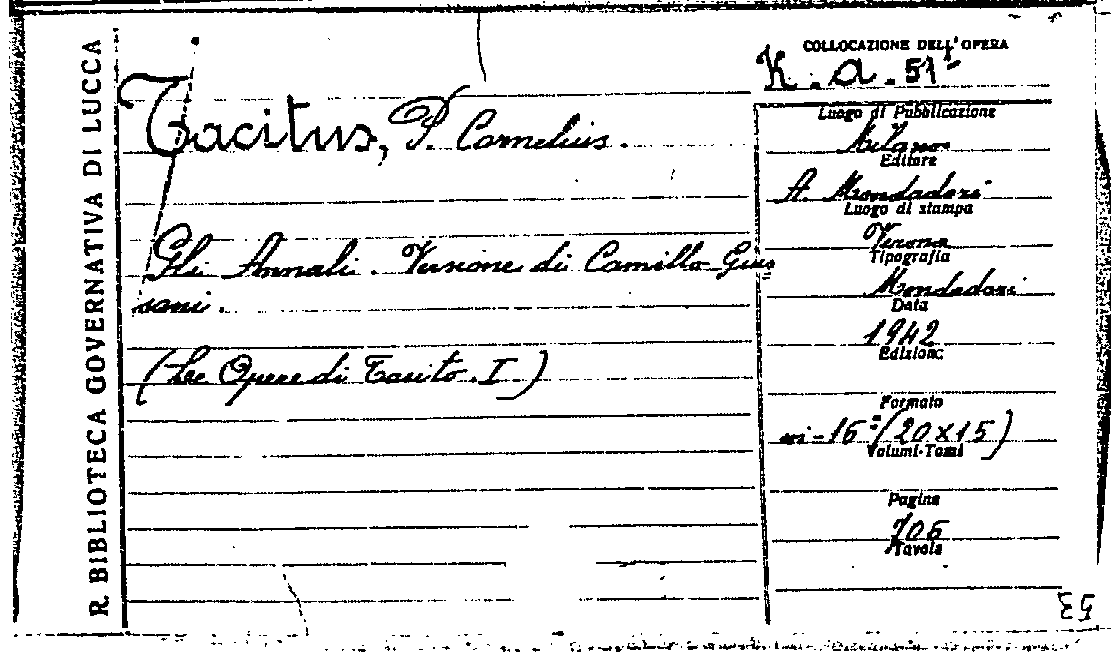 R. BIBLIOTECA GOVERNATIVA DI LUCCA
Tacitus, P. Cornelius.
Gli Annali. Versione di Camillo Gius
sani.
(Le Opere di Tacito. I)
COLLOCAZIONE DELL'OPERA
K. a. 51
Luogo di Pubblicazione
Milano
Editore
A. Mondadori
Luogo di stampa
Verona
Tipografia
Mondadori
Data
1942
Edizione
Formato
in-16º (20x15)
Volumi-Tomi
Pagine
706
Tavole
53